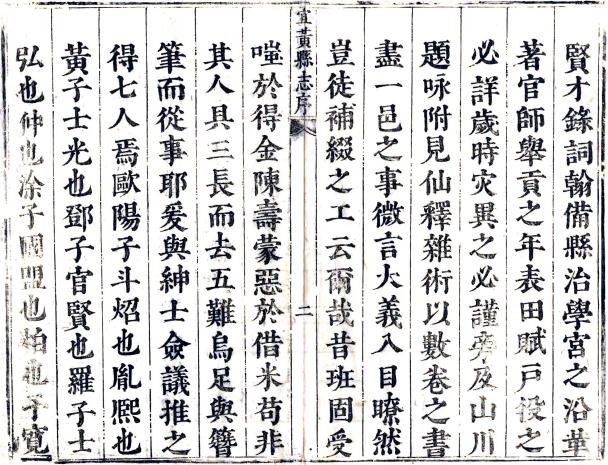 賢才錄詞翰備縣治學宮之沿革
著官師舉貢之年表田賦戶役之
必詳歲時灾異之必謹旁及山川
題咏附見仙釋雜術以數卷之書
盡一邑之事微言大義入目瞭然
豈徒補綴之工云爾哉昔班固受
宜黃縣志序
二
嗤於得金陳壽蒙惡於借米苟非
其人具三長而去五難烏足與簪
筆而從事耶爰與紳士僉議推之
得七人焉歐陽子斗炤也胤熈也
黃子士光也鄧子官賢也羅子士
弘也仲也涂子國盟也柏也予寬